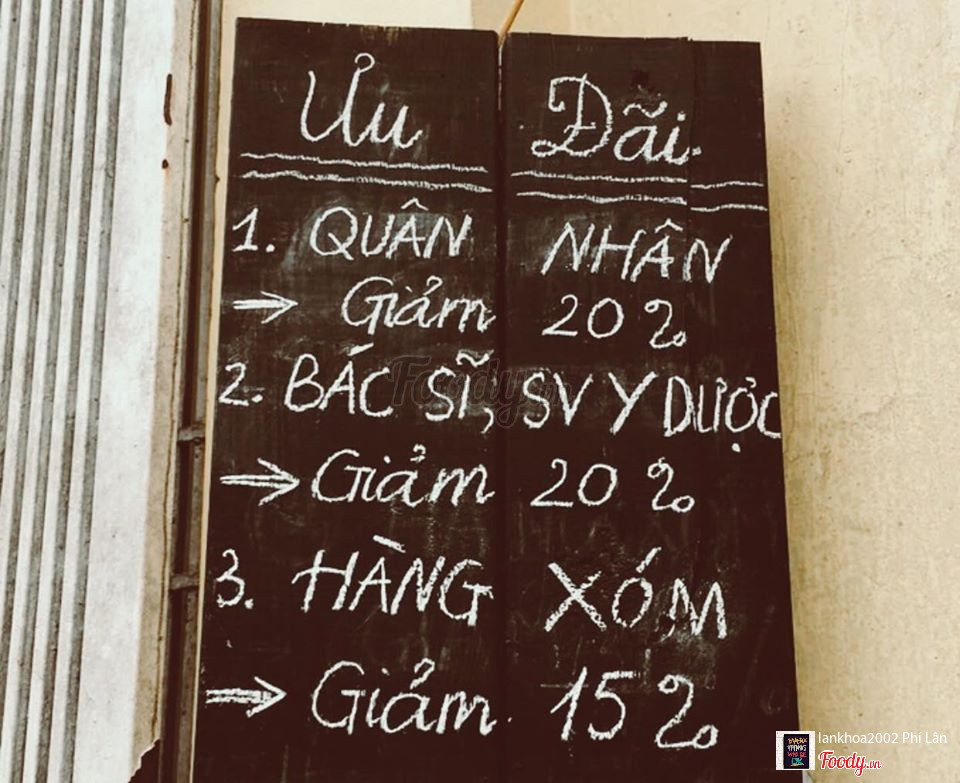 Ưu Đãi
1. QUÂN NHÂN
→ Giảm 20%
2. BÁC SĨ, SV Y DƯỢC
⇒ Giảm 20%
3. HÀNG XÓM
⇒ Giảm 15%
Foody.vn
lankhoa2002 Phí Lân
Foody.vn